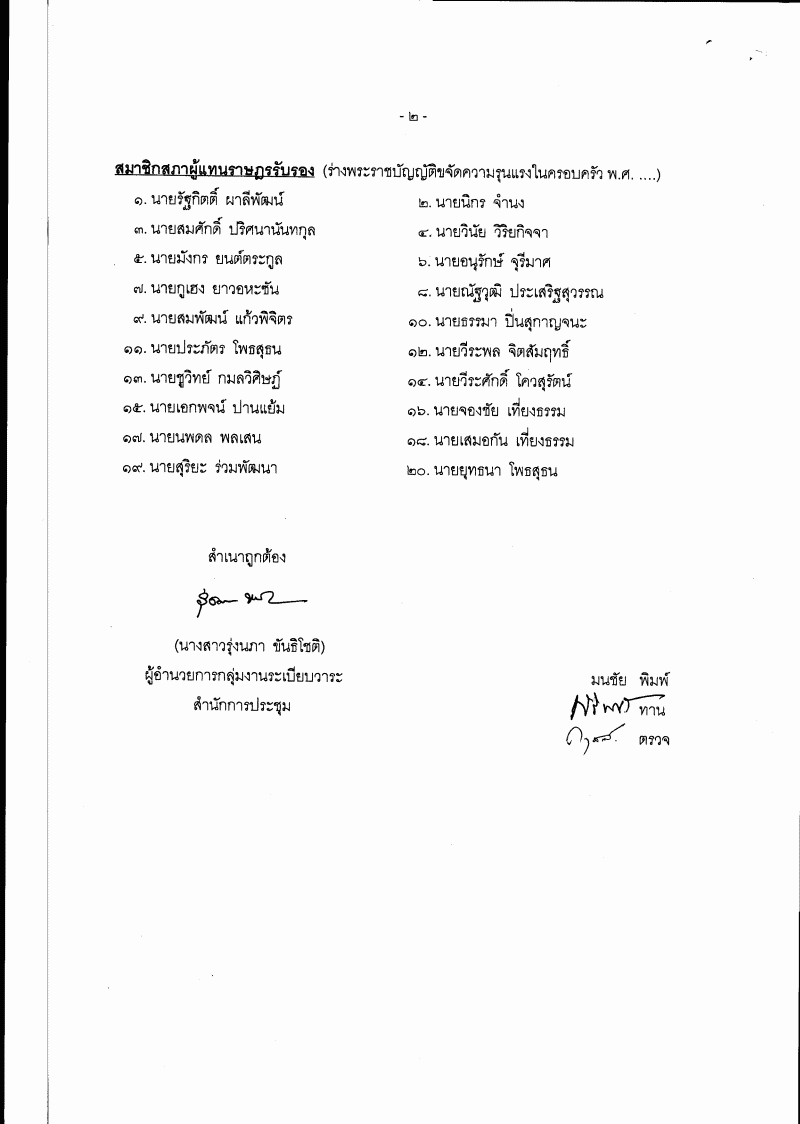 - ๒ -
สมาชิกสภาผู้แทนราษฎรรับรอง (ร่างพระราชบัญญัติขจัดความรุนแรงในครอบครัว พ.ศ. ....)
๑. นายรัฐกิตติ์ ผาลีพัฒน์ ๒. นายนิกร จำนง
๓. นายสมศักดิ์ ปริศนานันทกุล ๔. นายวินัย วิริยกิจจา
๕. นายมังกร ยนต์ตระกูล ๖. นายอนุรักษ์ จุรีมาศ
๗. นายกูเฮง ยาวอหะซัน ๘. นายณัฐวุฒิ ประเสริฐสุวรรณ
๙. นายสมพัฒน์ แก้วพิจิตร ๑๐. นายธรรมา ปิ่นสุกาญจนะ
๑๑. นายประภัตร โพธสุธน ๑๒. นายวีระพล จิตสัมฤทธิ์
๑๓. นายชูวิทย์ กมลวิศิษฎ์ ๑๔. นายวีระศักดิ์ โควสุรัตน์
๑๕. นายเอกพจน์ ปานแย้ม ๑๖. นายจองชัย เที่ยงธรรม
๑๗. นายนพดล พลเสน ๑๘. นายเสมอกัน เที่ยงธรรม
๑๙. นายสุริยะ ร่วมพัฒนา ๒๐. นายยุทธนา โพธสุธน
สำเนาถูกต้อง
(นางสาวรุ่งนภา ขันธิโชติ)
ผู้อำนวยการกลุ่มงานระเบียบวาระ
สำนักการประชุม
มนชัย พิมพ์
ทาน
ตรวจ